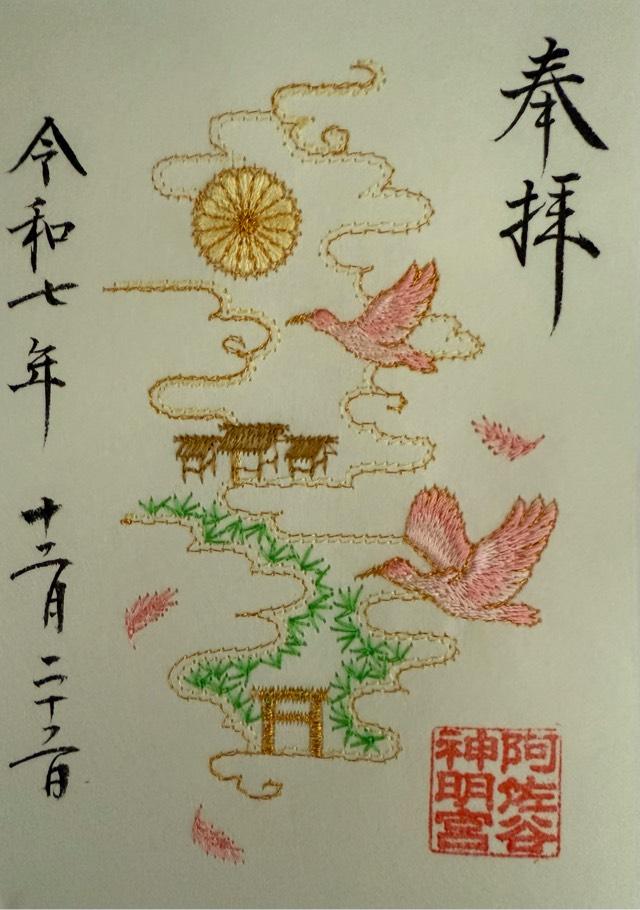 奉拝
阿佐谷
神明宮
令和七年 十二月二十二日